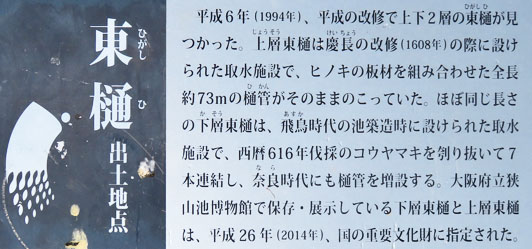 東樋
ひがし
ひ
出土地点
平成6年(1994年)、平成の改修で上下2層の東樋が見
ひがしひ
つかった。上層東樋は慶長の改修(1608年)の際に設け
じょうそう
けいちょう
られた取水施設で、ヒノキの板材を組み合わせた全長
約73mの樋管がそのままのこっていた。ほぼ同じ長さ
ひかん
の下層東樋は、飛鳥時代の池築造時に設けられた取水
かそう
あすか
施設で、西暦616年伐採のコウヤマキを刳り抜いて7
本連結し、奈良時代にも樋管を増設する。大阪府立狭
なら
山池博物館で保存・展示している下層東樋と上層東樋
は、平成26年(2014年)、国の重要文化財に指定された。